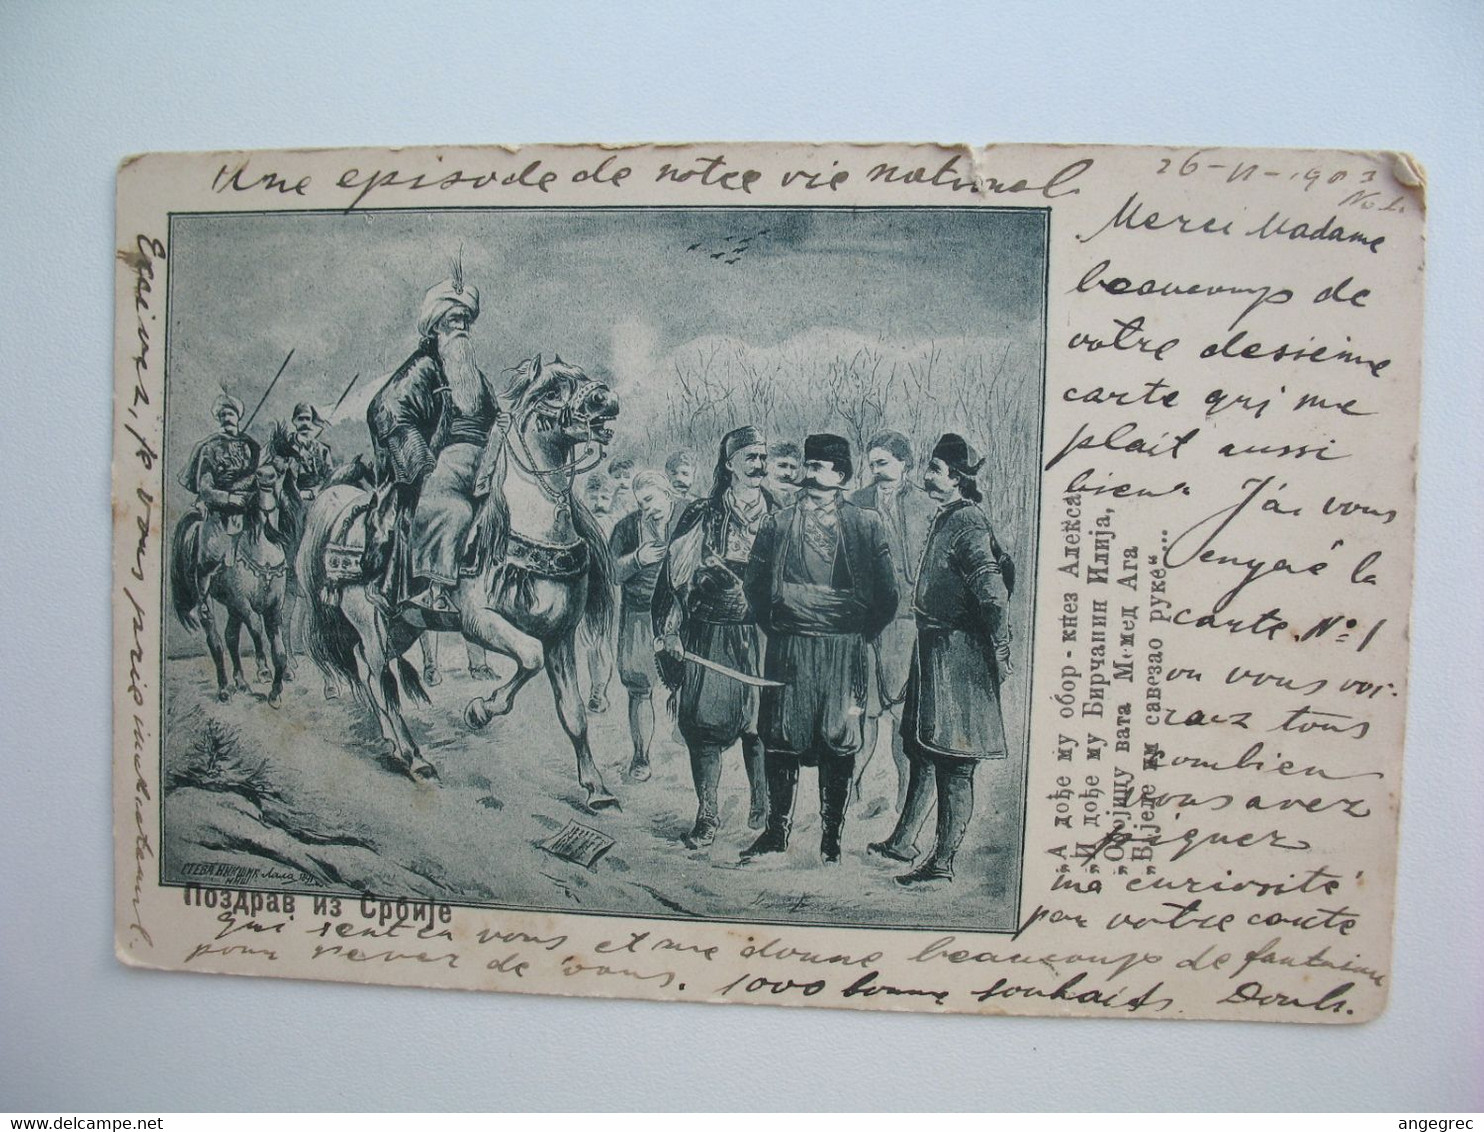 Une episode de notre vie national
26-II-1903
No 2.
Merci Madame
beaucoup de
votre desieme
carte qri me
plait aussi
bien. J'ai vous
envoyé la
carte No 1
ou vous vor-
raez tous
combien
vous avez
piquer
ma curiosité
par votre carte
qui sent en vous et me donne beaucoup de fantaisie
pour rever de vous. 1000 bonne souhaits.
je vous prie
„А дође му обор-кнез Алекса,
„И дође му Бирчанин Илија,
„Обојицу вата Мемед Ага
„Бијеле им савезао руке“...
СТЕВА НИКШИЋ Лала
НИШ
Поздрав из Србије
delcampe.net
angegrec